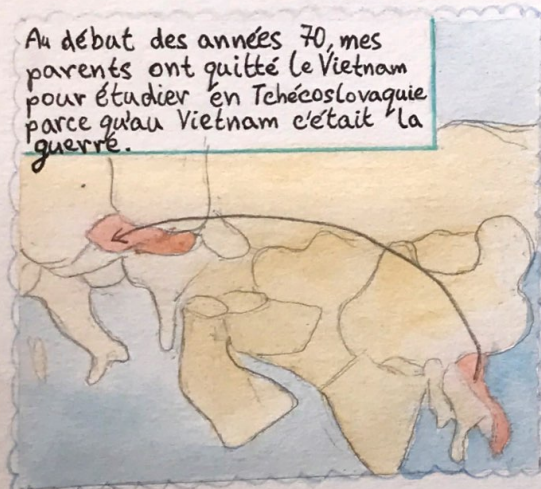 Au début des années 70, mes
parents ont quitté le Vietnam
pour étudier en Tchécoslovaquie
parce qu'au Vietnam c'était la
guerre.